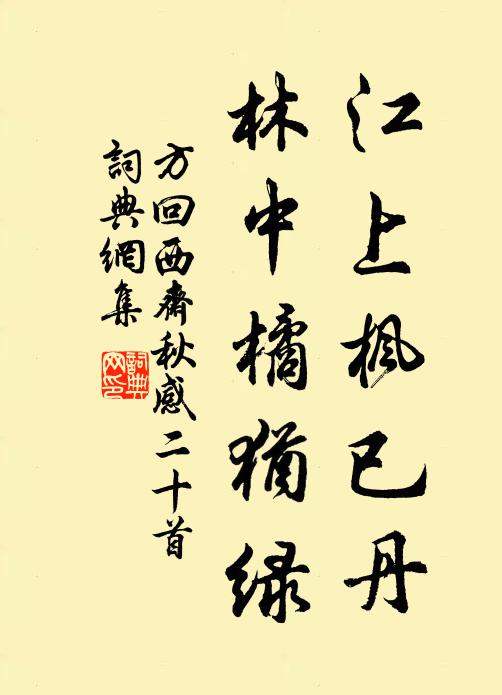 江上楓已丹
林中橘猶緑
方回西齋秋感二十首
詞典網集
詞典
网印